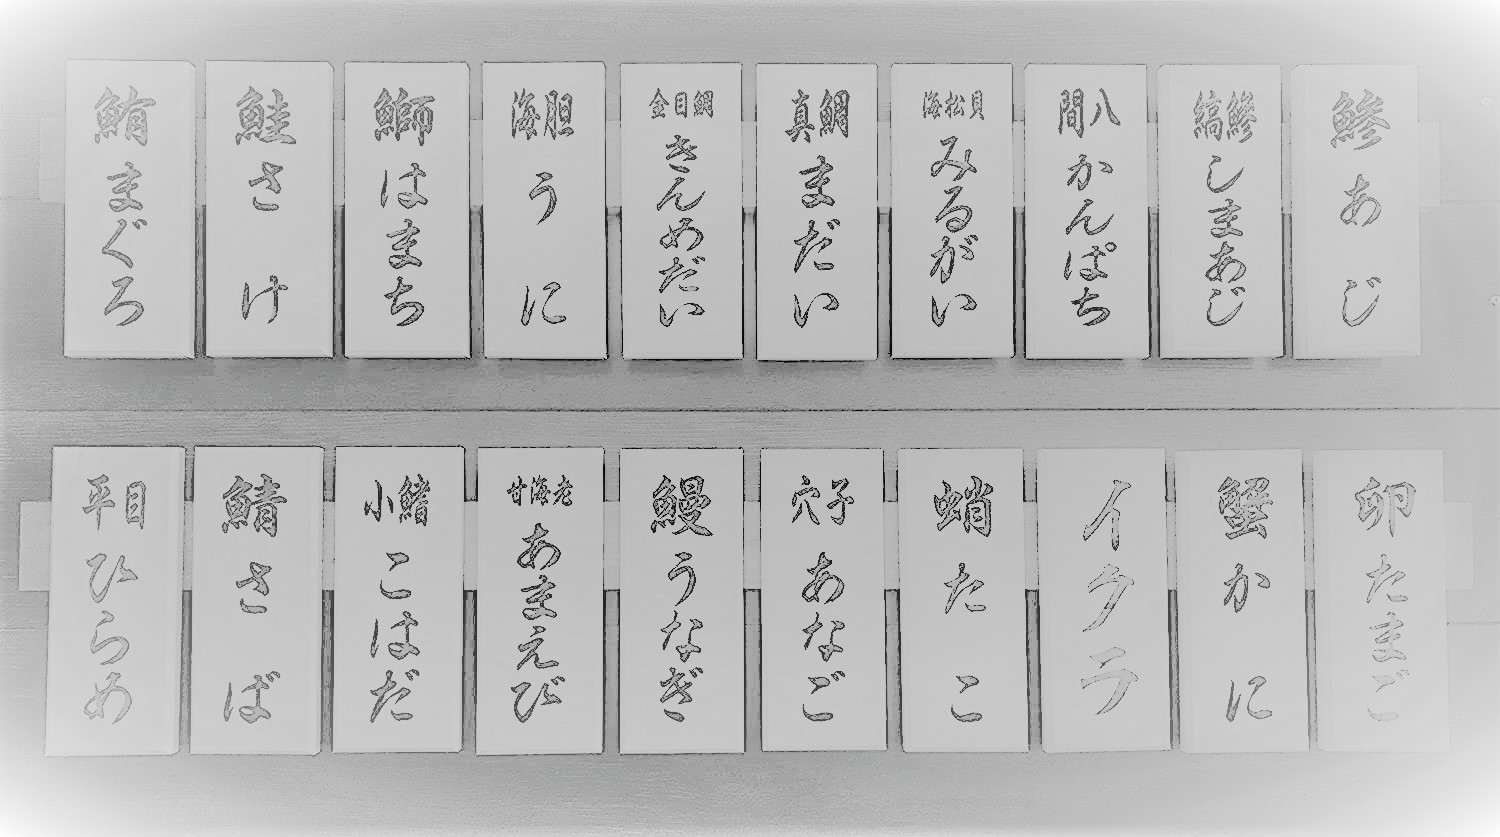 鮪 まぐろ
鮭 さけ
鰤 はまち
海胆 うに
金目鯛 きんめだい
真鯛 まだい
海松貝 みるがい
間八 かんぱち
縞鯵 しまあじ
鯵 あじ
平目 ひらめ
鯖 さば
小鰭 こはだ
甘海老 あまえび
鰻 うなぎ
穴子 あなご
蛸 たこ
イクラ
蟹 かに
卵 たまご